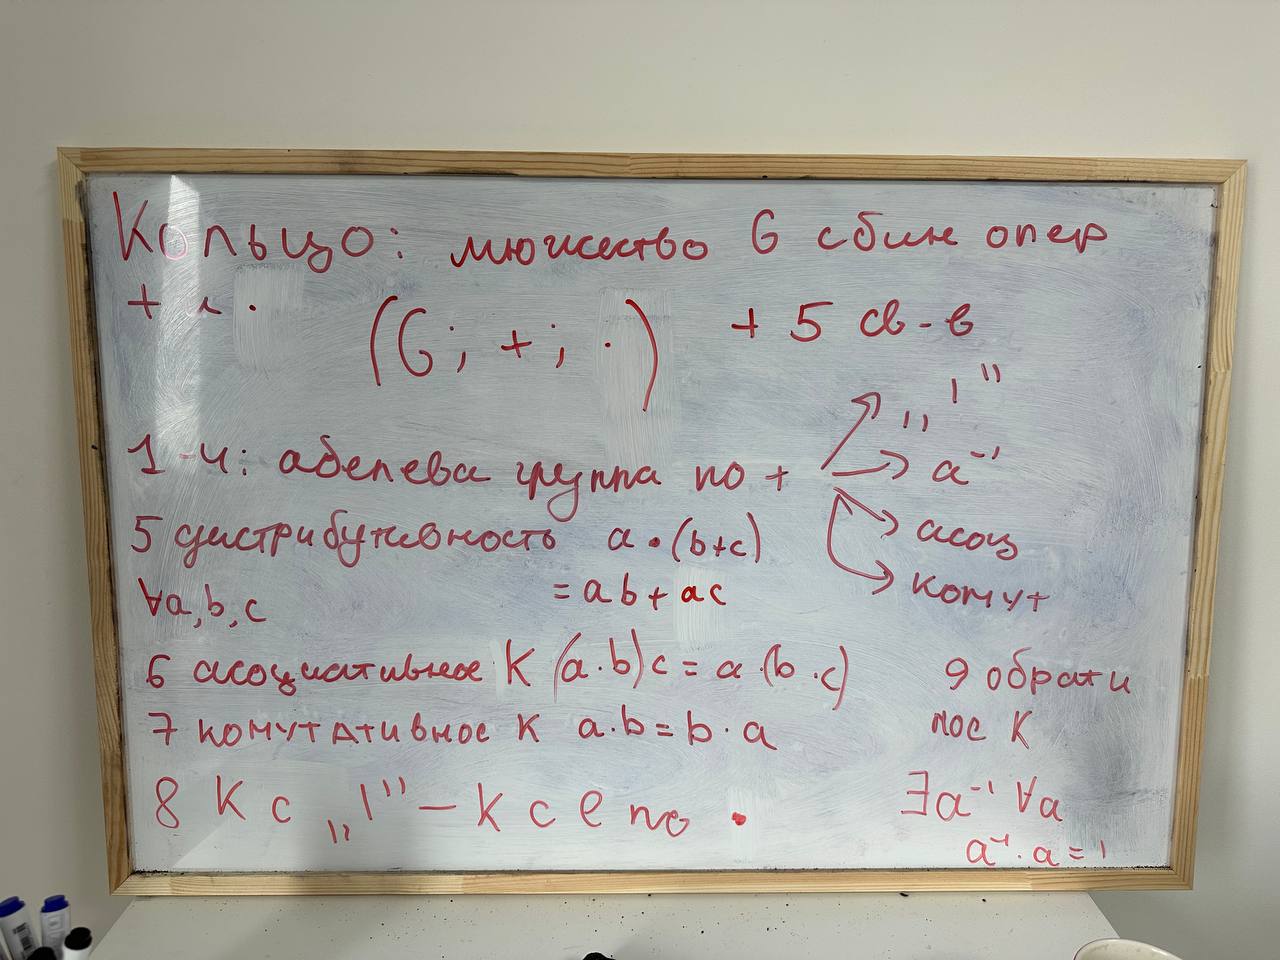 Кольцо: множество G с бин опер
+ и ·
(G; +; ·)
+ 5 св-в
1-4: абелева группа по +
„1"
a⁻¹
асоц
комут
5 дистрибутивность a·(b+c)
∀a,b,c = ab + ac
6 асоциативное К (a·b)c = a·(b·c)
7 комутативное К a·b = b·a
8 К с „1" – К с е по ·
9 обрати
мое К
∃a⁻¹ ∀a
a⁻¹·a = 1